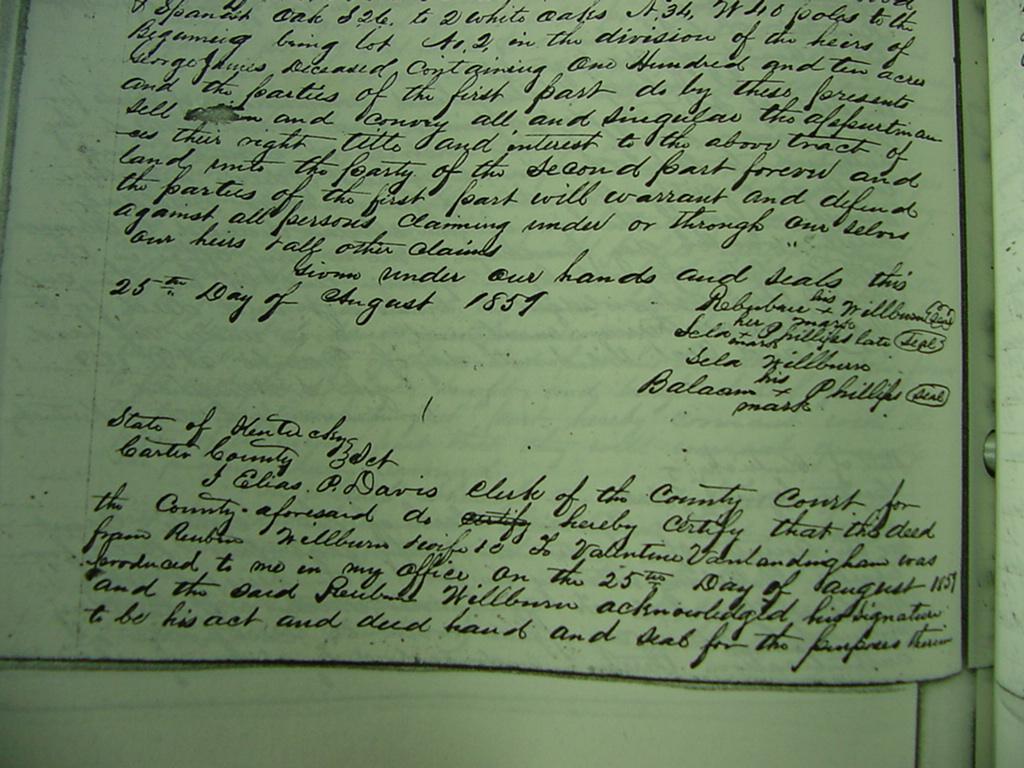 & Spanish Oak S 26. to 2 white oaks N. 34, W 40 poles to the
Beginning being lot No. 2, in the division of the heirs of
George James Deceased Containing One Hundred and ten acres
and the parties of the first part do by these presents
sell and convey all and singular the appurtinan
ces their right title and interest to the above tract of
land, unto the party of the second part forever and
the parties of the first part will warrant and defend
against all persons claiming under or through our selvs
our heirs & all other claims
Given under our hands and seals this
25th Day of August 1859
his
Rebuben + Willburn (Seal)
mark
her
Sela + Phillips late (Seal)
mark
Sela Willburn
his
Balaam + Phillips (Seal)
mark
State of Kentucky
Carter County } Sct
I Elias. P. Davis Clerk of the County Court for
the County aforesaid do certify hereby Certify that the deed
from Reuben Willburn & wife To Valentine Vanlandingham was
produced to me in my office on the 25th Day of August 1859
and the said Reuben Willburn acknowledged his signature
to be his act and deed hand and seal for the purposes therein